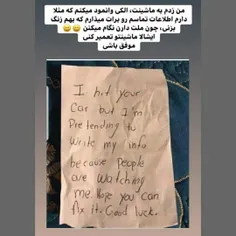 من زدم به ماشینت، الکی وانمود میکنم که مثلا
دارم اطلاعات تماسم رو برات میذارم که بهم زنگ
بزنی، چون ملت دارن نگام میکنن 😄😄
ایشالا ماشینتو تعمیر کنی
موفق باشی
I hit your
car but I'm
Pretending to
write my info
because people
are watching
me. Hope you can
fix it. Good luck.